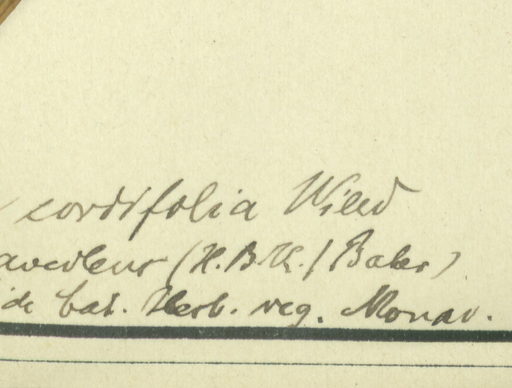 cordifolia Willd
avedens (H.B.K.) Baker)
ide bat. Herb. reg. Monac.